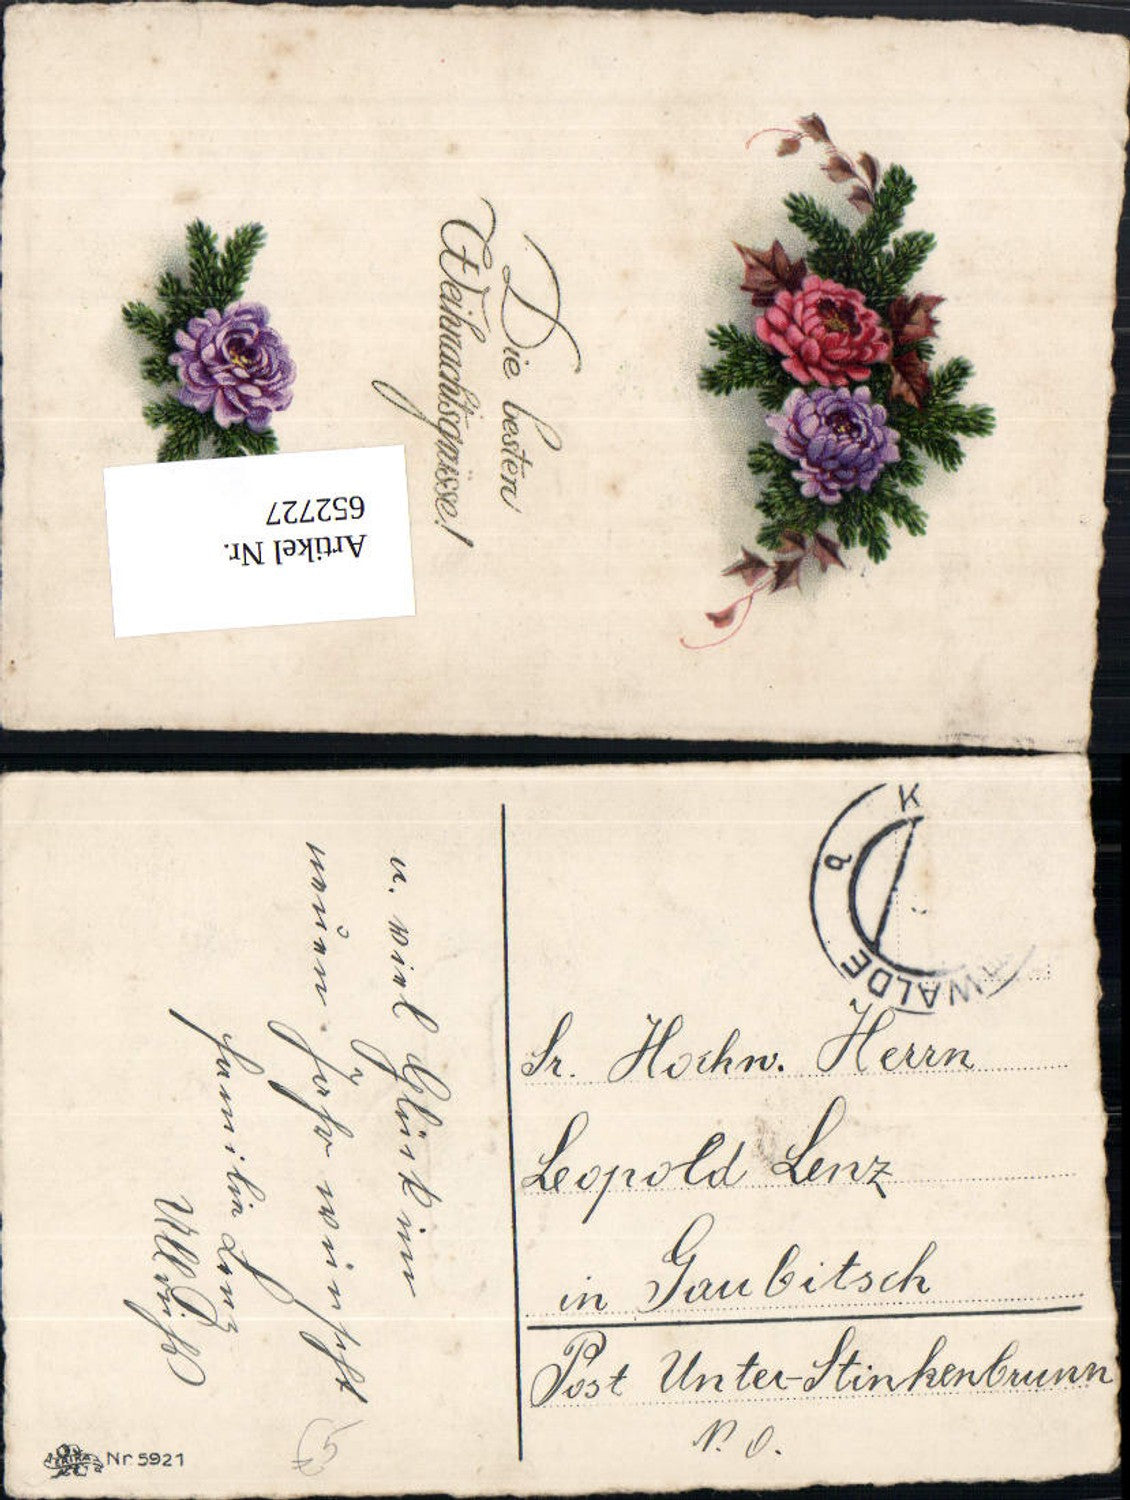 Die besten
Weihnachtsgrüsse!
Artikel Nr.
652727
u. viel Glück im
neuen Jahr wünscht
Familie Lenz
K
b
WALDE
Sr. Hochw. Herrn
Leopold Lenz
in Gaubitsch
Post Unter-Stinkenbrunn
N. Ö.
Nr 5921